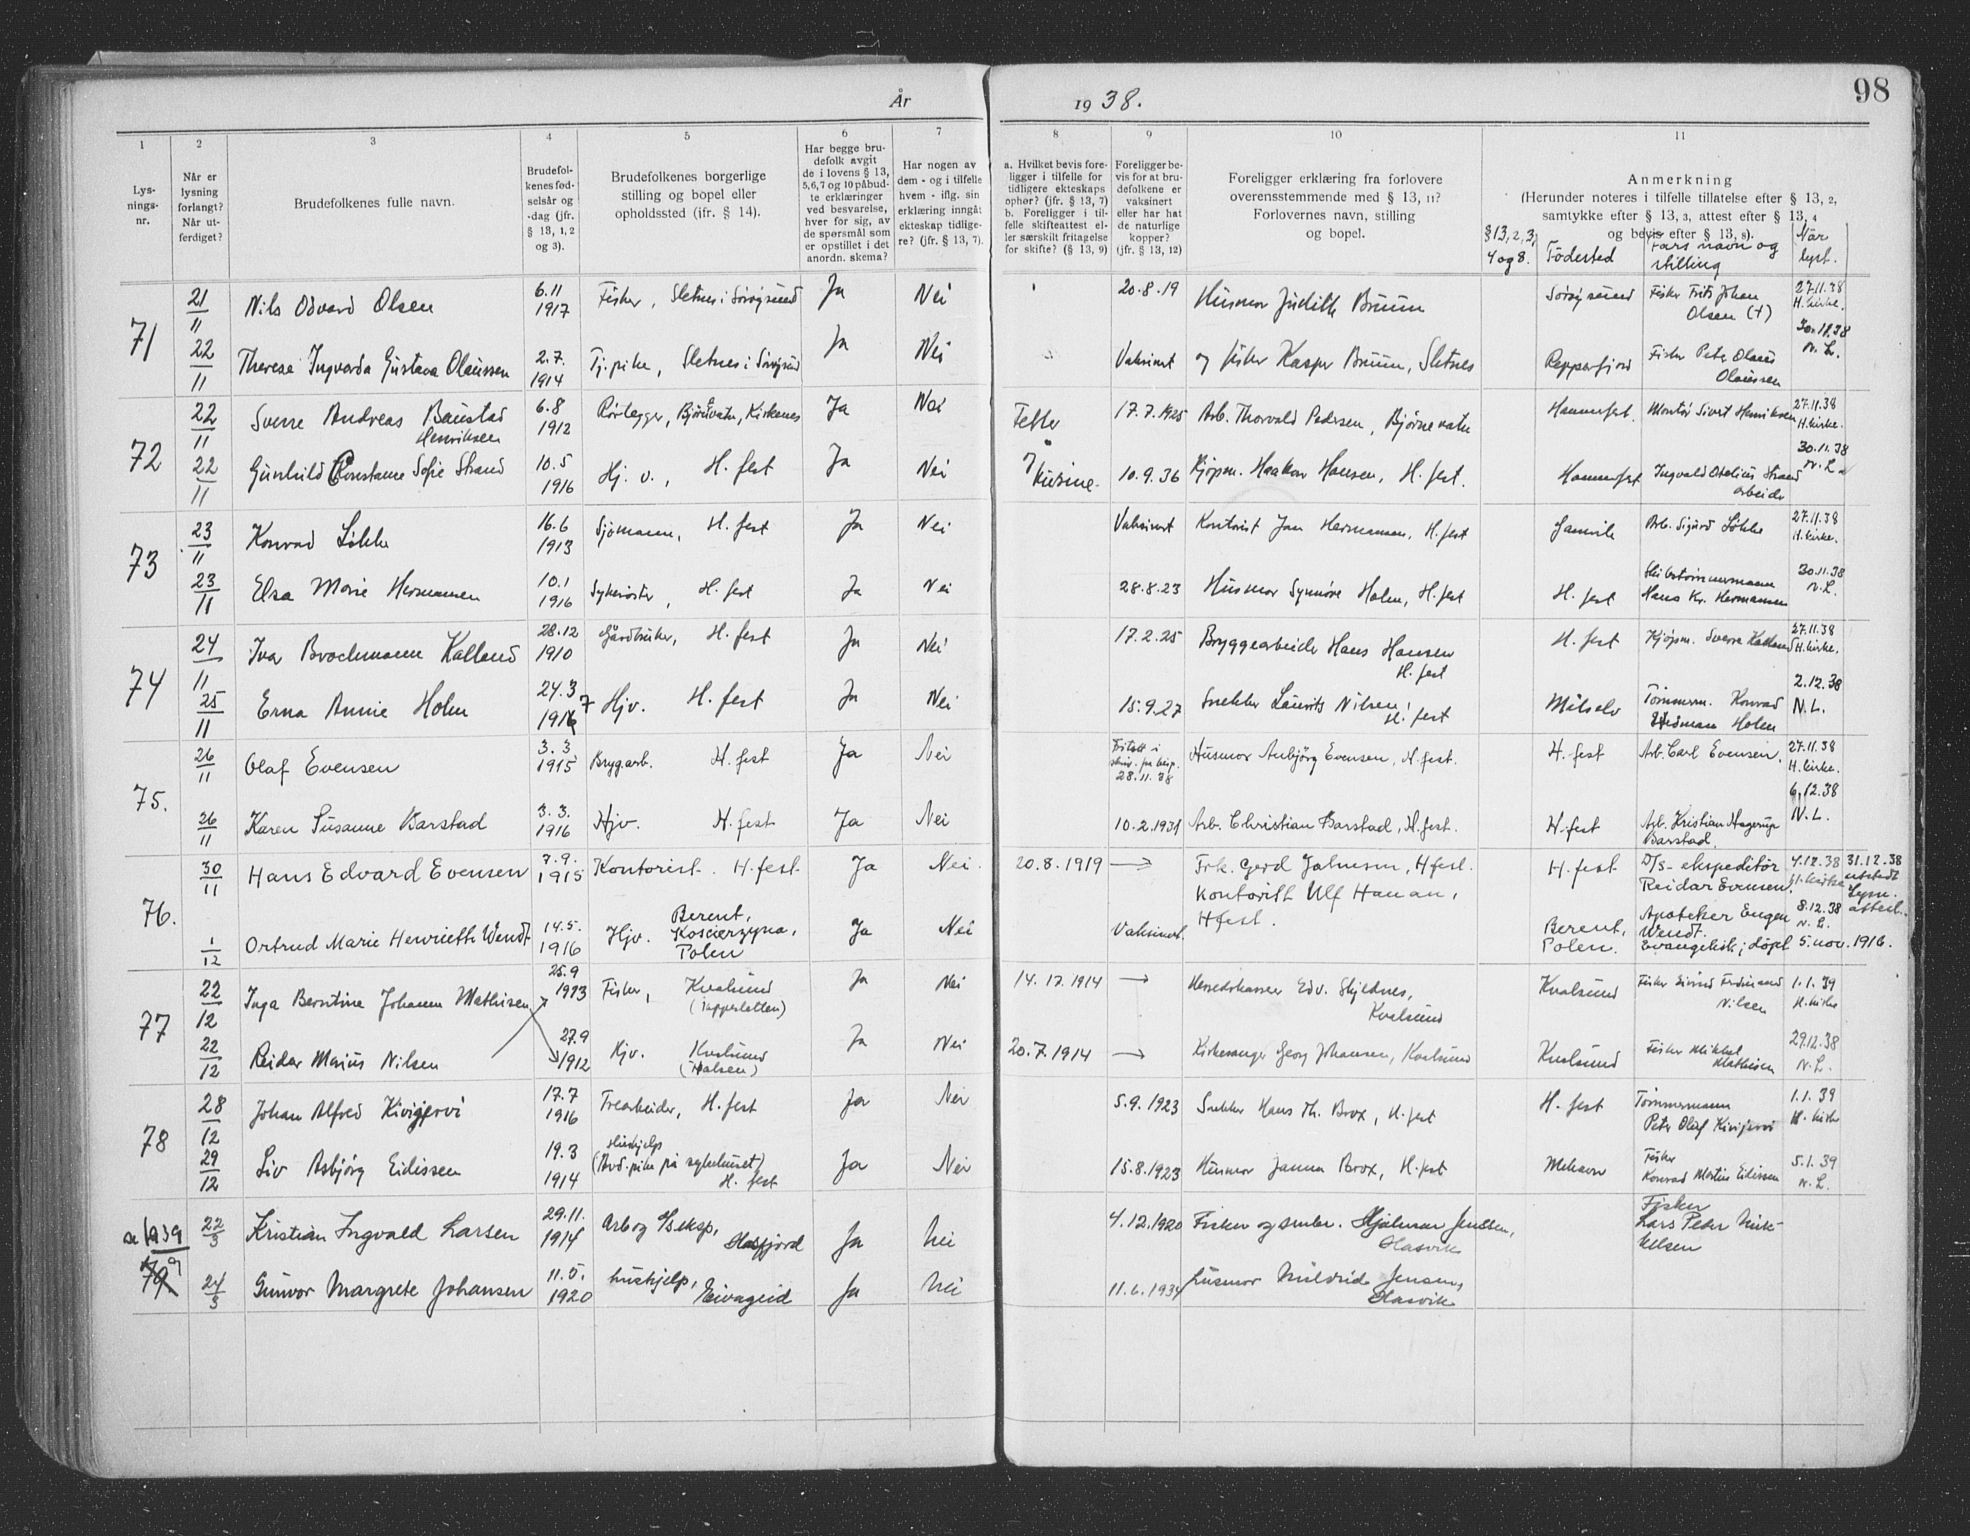 År 1938. 98
1 2 3 4 5 6 7 8 9 10 11
Lys-
nings-
nr.
Når er
lysning
forlangt?
Når ut-
ferdiget?
Brudefolkenes fulle navn.
Brudefol-
kenes fød-
selsår og
-dag (jfr.
§ 13, 1, 2
og 3).
Brudefolkenes borgerlige
stilling og bopel eller
opholdssted (jfr. § 14).
Har begge bru-
defolk avgit
de i lovens § 13,
5, 6, 7 og 10 påbud-
te erklæringer
ved besvarelse,
hver for sig, av
de spørsmål som
er opstillet i det
anordn. skema?
Har nogen av
dem - og i tilfelle
hvem - iflg. sin
erklæring inngåt
ekteskap tidlige-
re? (jfr. § 13, 7).
a. Hvilket bevis fore-
ligger i tilfelle for
tidligere ekteskaps
ophør? (jfr. § 13, 7)
b. Foreligger i til-
felle skifteattest el-
ler særskilt fritagelse
for skifte? (§ 13, 9)
Foreligger be-
vis for at bru-
defolkene er
vaksinert
eller har hat
de naturlige
kopper?
(jfr. § 13, 12)
Foreligger erklæring fra forlovere
overensstemmende med § 13, 11?
Forlovernes navn, stilling
og bopel.
Anmerkning
(Herunder noteres i tilfelle tillatelse efter § 13, 2,
samtykke efter § 13, 3, attest efter § 13, 4
og bevis efter § 13, 8).
§ 13, 2, 3,
4 og 8.
Fødested
Fars navn og
stilling
Når
lyst.
71
21/11 Nils Odvard Olsen 6.11 1917 Fisker, Sletnes i Sørøysund Ja Nei 20-8-19 Husmor Judith Bruun Sørøysund Fisker Frits Johan Olsen (†) 27.11.38 H.kirke.
22/11 Therese Ingvarda Gustava Olaussen 2.7. 1914 Tj.pike, Sletnes i Sørøysund Ja Nei Vaksinert og fisker Kasper Bruun, Sletnes Repparfjord Fisker Peter Olaus Olaussen 30.11.38 N.L.
72
22/11 Sverre Andreas Baustad Henriksen 6.8 1912 Rørlegger, Bjørnevatn, Kirkenes Ja Nei Fetter 17.7.1925 Arb. Thorvald Pedersen, Bjørnevatn Hammerfest. Montør Sivert Henriksen 27.11.38 H.kirke.
22/11 Gunhild Constanse Sofie Strand 10.5 1916 Hj. v., H. fest Ja Nei Kusine. 10.9.36 Kjøpm. Haakon Hansen, H. fest. Hammerfest Ingvald Otelius Strand arbeider 30.11.38 N.L.
73
23/11 Konrad Løkke 16.6 1913 Sjømann, H. fest Ja Nei Vaksinert Kontorist Jan Hermansen, H. fest Gamvik Arb. Sigurd Løkke 27.11.38 H.kirke.
23/11 Elsa Marie Hermansen 10.1 1916 Sykesøster, H. fest Ja Nei 28.8.23 Husmor Synnøve Holm, H. fest H. fest Skibstømmermann Hans Kr. Hermansen 30.11.38 N.L.
74
24/11 Ivar Brochmann Kalland 28.12 1910 Gårdbruker, H. fest Ja Nei 17.2.25 Bryggearbeider Hans Hansen H. fest H. fest Kjøpm. Sverre Kalland 27.11.38 H.kirke.
25/11 Erna Annie Holm 24.3 1917 Hjv. H. fest Ja Nei 15.9.27 Snekker Laurits Nilsen, H. fest Målselv Tømmerm. Konrad Holm 2.12.38 N.L.
75.
26/11 Olaf Evensen 3.3 1915 Brygarb. H. fest Ja Nei 28.11.38 Husmor Anbjørg Evensen, H. fest. H. fest Arb. Carl Evensen. 27.11.38 H.kirke.
26/11 Karen Susanne Barstad 3.3. 1916 Hjv. H. fest Ja Nei 10.2.1931 Arb. Christian Barstad, H. fest. H. fest Arb. Kristian Hagerup Barstad. 6.12.38 N.L.
76.
30/11 Hans Edvard Evensen 7.9. 1915 Kontorist. H. fest Ja Nei. 20.8.1919 → Frk. Gerd Johnsen, Hfest. Kontorist Ulf Hanan, Hfest. H. fest D/S-ekspeditør Reidar Evensen. 4.12.38 H.kirke 31.12.38 utstedt Lysn. attest.
1/12 Ortrud Marie Henriette Wendt 14.5. 1916 Hjv. Berent, Koscierzyna, Polen Ja Nei Vaksinert. Berent, Polen. Apoteker Eugen Wendt. 8.12.38 N.L. Evangelisk; døpt 5. nov. 1916.
77
22/12 Inga Berntine Johanne Mathisen 25.9 1913 Fisker, Kvalsund Ja Nei 14.12.1914 → Herredskasserer Edv. Skjeldnes, Kvalsund Kvalsund Fisker Eivind Ferdinand Nilsen 1.1.39 H.kirke
22/12 Reidar Marius Nilsen 27.9 1912 Hjv. Kvalsund (Halsen) Ja Nei 20.7.1914 → Kirkesanger Georg Johansen, Kvalsund Kvalsund Fisker Mikkel Mathisen 29.12.38 N.L.
78
28/12 Johan Alfred Kivijervi 17.7 1916 Trearbeider, H. fest Ja Nei 5.9.1923 Snekker Hans Th. Brox, H. fest H. fest Tømmermann Peter Olaf Kivijervi 1.1.39 H.kirke
29/12 Liv Asbjørg Eidissen 19.3 1914 Huskjelp (Avd.pike på sykehuset) H. fest Ja Nei 15.8.1923 Husmor Janna Brox, H. fest Mehavn Fisker Konrad Martin Eidissen 5.1.39 N.L.
se 1939 9
79
22/3 Kristian Ingvald Larsen 29.11. 1914 Arb og eksp, Hasfjord Ja Nei 4.12.1920 Fisker og småbr. Hjalmar Jensen, Hasvik Fisker Lars Peder
24/3 Gunvor Margrete Johansen 11.5. 1920 huskjelp, Eivageid Ja Nei 11.6.1934 Husmor Mildrid Jensen, Hasvik